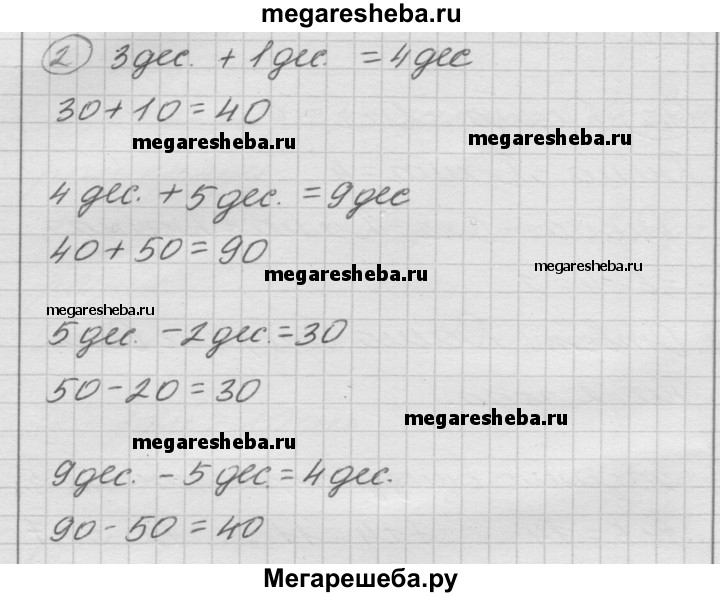 megaresheba.ru
2 3дес. + 1дес. = 4дес
30+10=40
megaresheba.ru
megaresheba.ru
4дес. + 5дес. = 9дес
40+50=90
megaresheba.ru
megaresheba.ru
megaresheba.ru
5дес. - 2дес. = 30
50-20=30
megaresheba.ru
megaresheba.ru
9дес. - 5дес. = 4дес.
90-50=40
Мегарешеба.ру